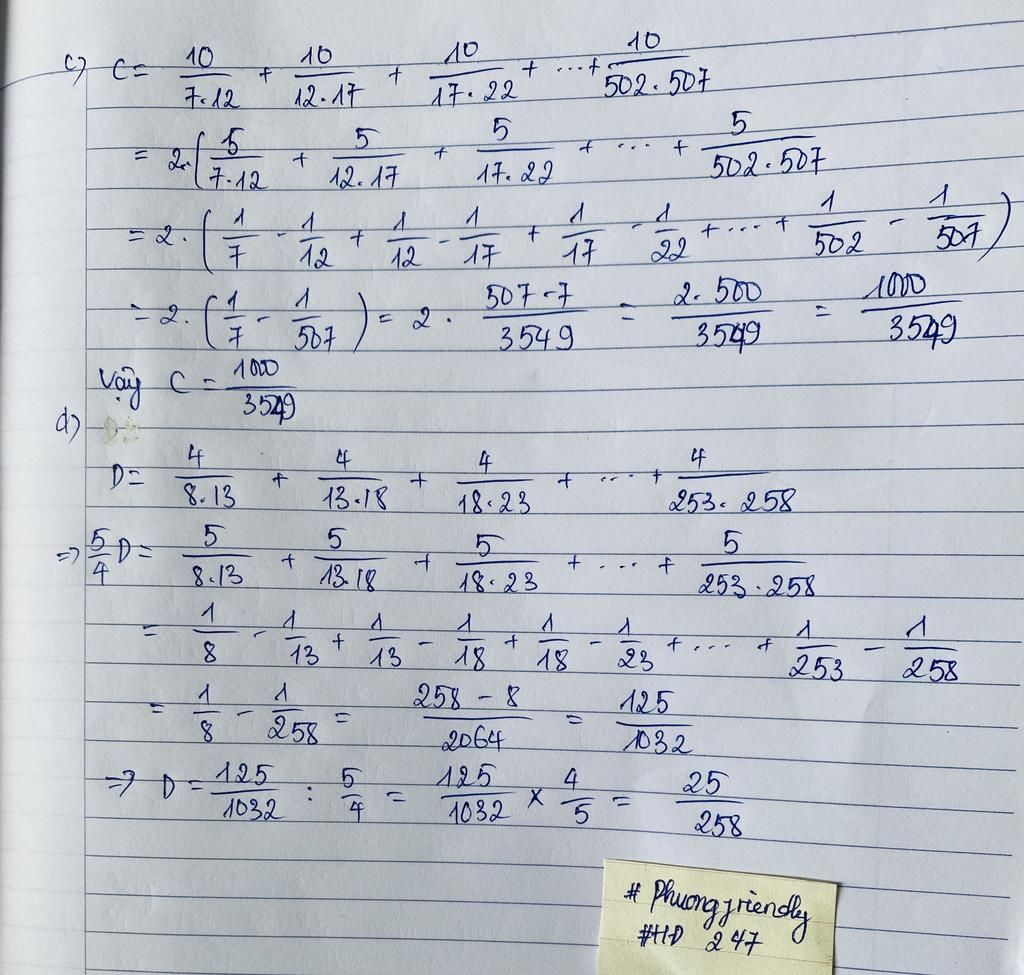 c) C = 10/7.12 + 10/12.17 + 10/17.22 + ... + 10/502.507
= 2.(5/7.12 + 5/12.17 + 5/17.22 + ... + 5/502.507
= 2.(1/7 - 1/12 + 1/12 - 1/17 + 1/17 - 1/22 + ... + 1/502 - 1/507)
= 2.(1/7 - 1/507) = 2. 507-7/3549 = 2.500/3549 = 1000/3549
Vậy C = 1000/3549
d)
D = 4/8.13 + 4/13.18 + 4/18.23 + ... + 4/253.258
=> 5/4 D = 5/8.13 + 5/13.18 + 5/18.23 + ... + 5/253.258
= 1/8 - 1/13 + 1/13 - 1/18 + 1/18 - 1/23 + ... + 1/253 - 1/258
= 1/8 - 1/258 = 258-8/2064 = 125/1032
=> D = 125/1032 : 5/4 = 125/1032 × 4/5 = 25/258
# Phuongfriendly
#HD 247